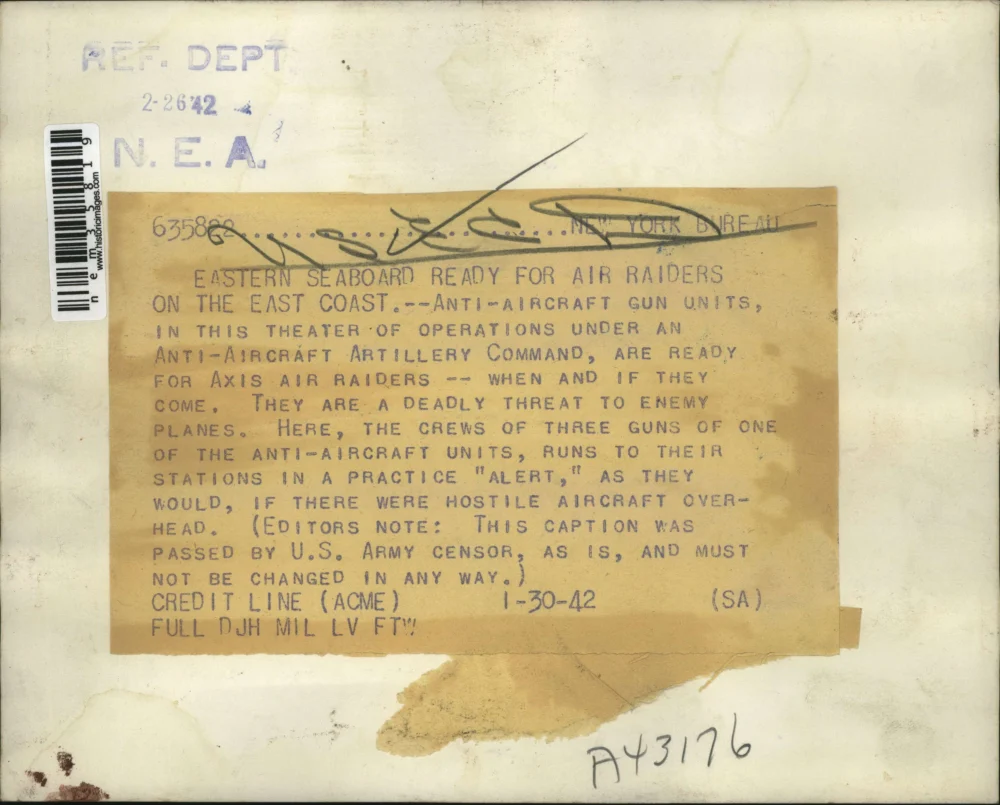 REF. DEPT
2-26'42
N. E. A.
nem35819
www.historicimages.com
NEW YORK BUREAU
EASTERN SEABOARD READY FOR AIR RAIDERS
ON THE EAST COAST.--ANTI-AIRCRAFT GUN UNITS,
IN THIS THEATER OF OPERATIONS UNDER AN
ANTI-AIRCRAFT ARTILLERY COMMAND, ARE READY
FOR AXIS AIR RAIDERS -- WHEN AND IF THEY
COME. THEY ARE A DEADLY THREAT TO ENEMY
PLANES. HERE, THE CREWS OF THREE GUNS OF ONE
OF THE ANTI-AIRCRAFT UNITS, RUNS TO THEIR
STATIONS IN A PRACTICE "ALERT," AS THEY
WOULD, IF THERE WERE HOSTILE AIRCRAFT OVER-
HEAD. (EDITORS NOTE: THIS CAPTION WAS
PASSED BY U.S. ARMY CENSOR, AS IS, AND MUST
NOT BE CHANGED IN ANY WAY.)
CREDIT LINE (ACME) 1-30-42 (SA)
FULL DJH MIL LV FTW
A43176